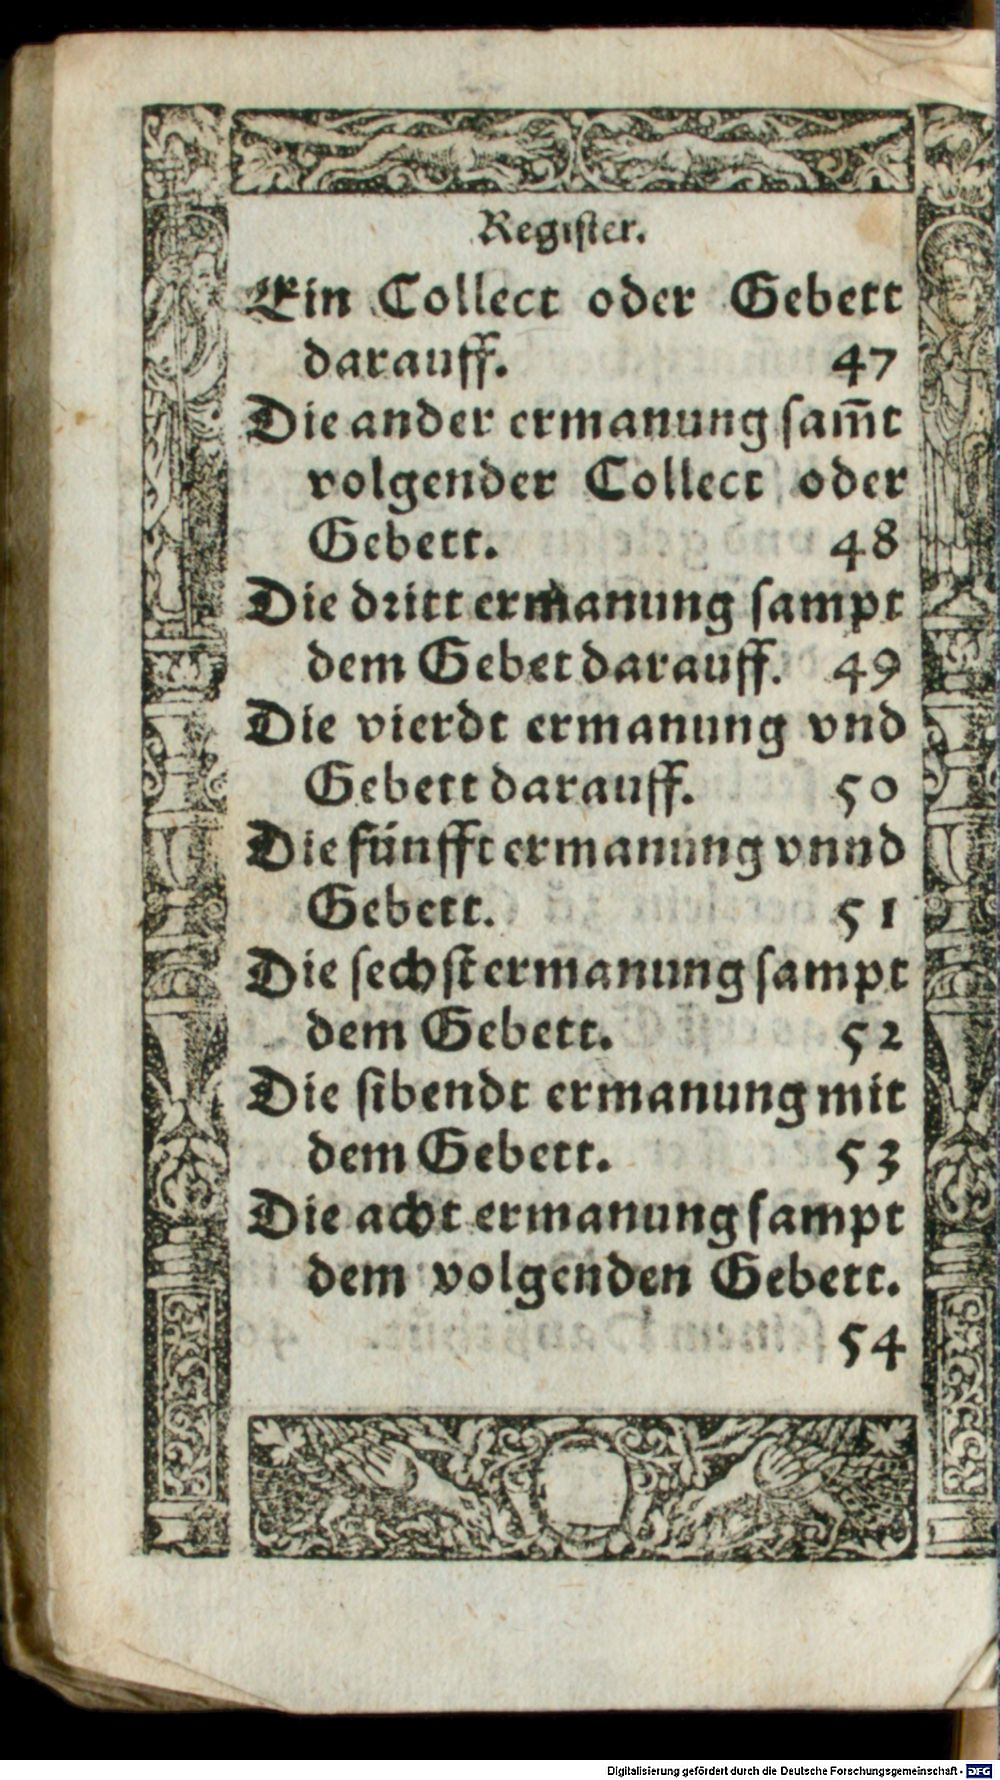 Register.
Ein Collect oder Gebett
darauff. 47
Die ander ermanung sam̄t
volgender Collect oder
Gebett. 48
Die dritt ermanung sampt
dem Gebet darauff. 49
Die vierdt ermanung vnd
Gebett darauff. 50
Die fünfft ermanung vnnd
Gebett. 51
Die sechst ermanung sampt
dem Gebett. 52
Die sibendt ermanung mit
dem Gebett. 53
Die acht ermanung sampt
dem volgenden Gebett.
54
Digitalisierung gefördert durch die Deutsche Forschungsgemeinschaft - DFG